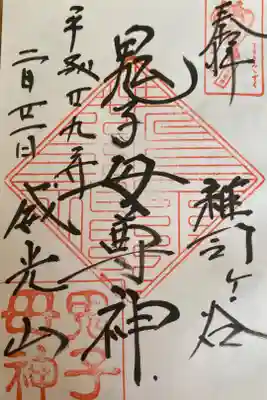 奉拝
雑司ヶ谷
鬼子母尊神
平成廿九年
二月廿一日
威光山
鬼子
母神